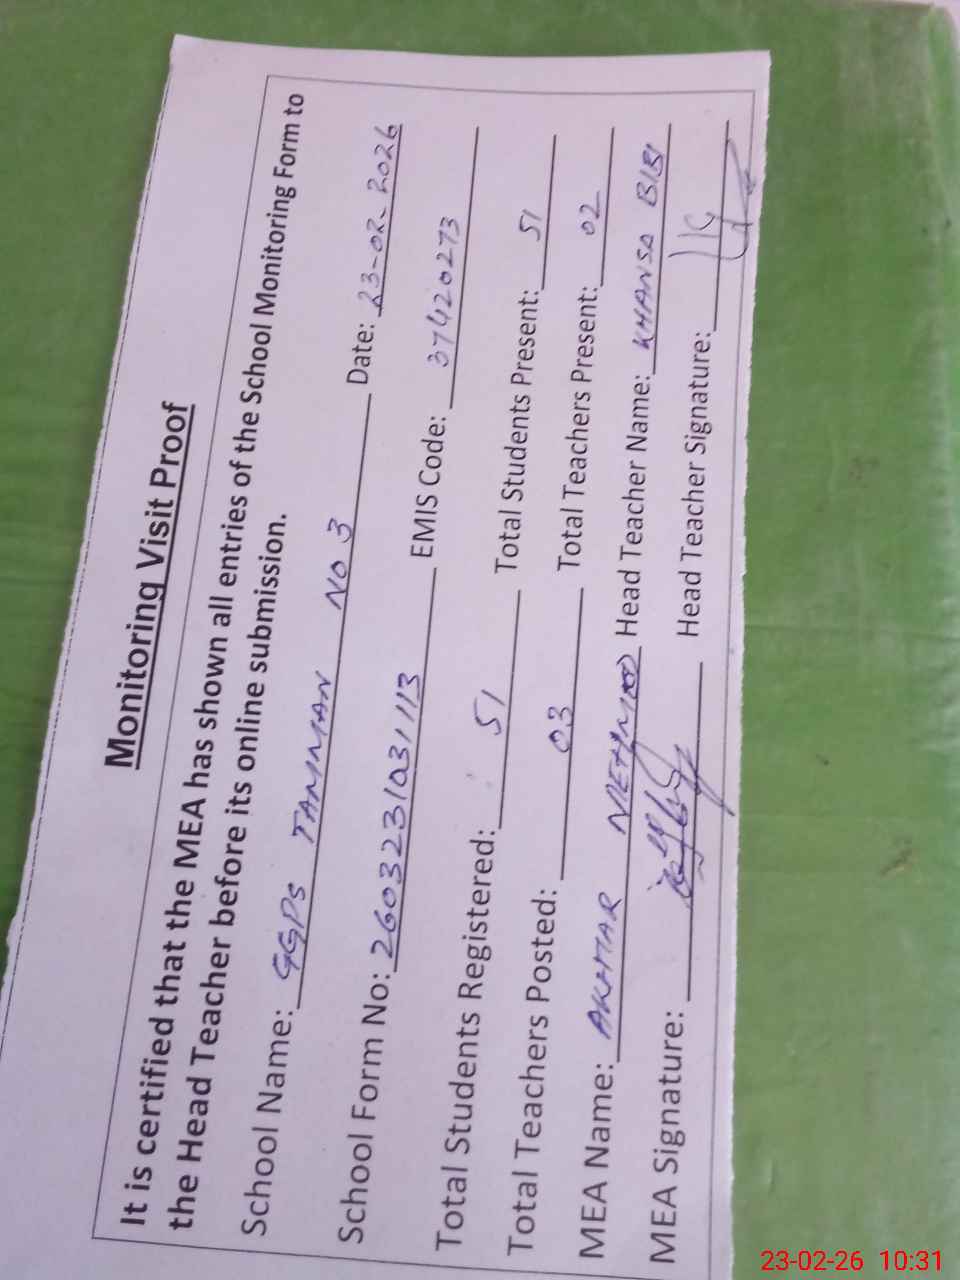 Monitoring Visit Proof
It is certified that the MEA has shown all entries of the School Monitoring Form to
the Head Teacher before its online submission.
School Name: GGPS TAMMAN NO 3 Date: 23-02-2026
School Form No: 2603231031113 EMIS Code: 37420273
Total Students Registered: 51 Total Students Present: 51
Total Teachers Posted: 03 Total Teachers Present: 02
MEA Name: AKHTAR MEHMOOD Head Teacher Name: KHANSA BIBI
MEA Signature: Head Teacher Signature:
23-02-26 10:31